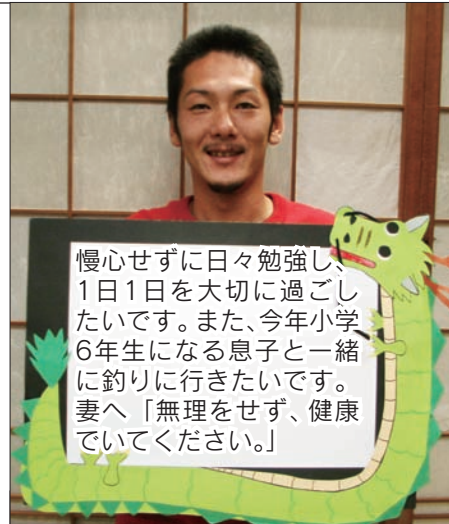 慢心せずに日々勉強し、
1日1日を大切に過ごし
たいです。また、今年小学
6年生になる息子と一緒
に釣りに行きたいです。
妻へ「無理をせず、健康
でいてください。」